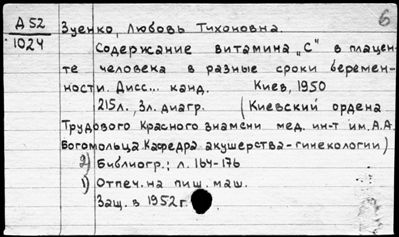 Д 52
1024
6
Зуенко, Любовь Тихоновна.
Содержание витамина „С" в плацен-
те человека в разные сроки беремен-
ности. Дисс... канд. Киев, 1950
215л., 3л. диагр. (Киевский ордена
Трудового Красного знамени мед. ин-т им. А.А.
Богомольца. Кафедра акушерства-гинекологии)
2) Библиогр.: л. 164-176
1) Отпеч. на пиш. маш.
Защ. в 1952г.